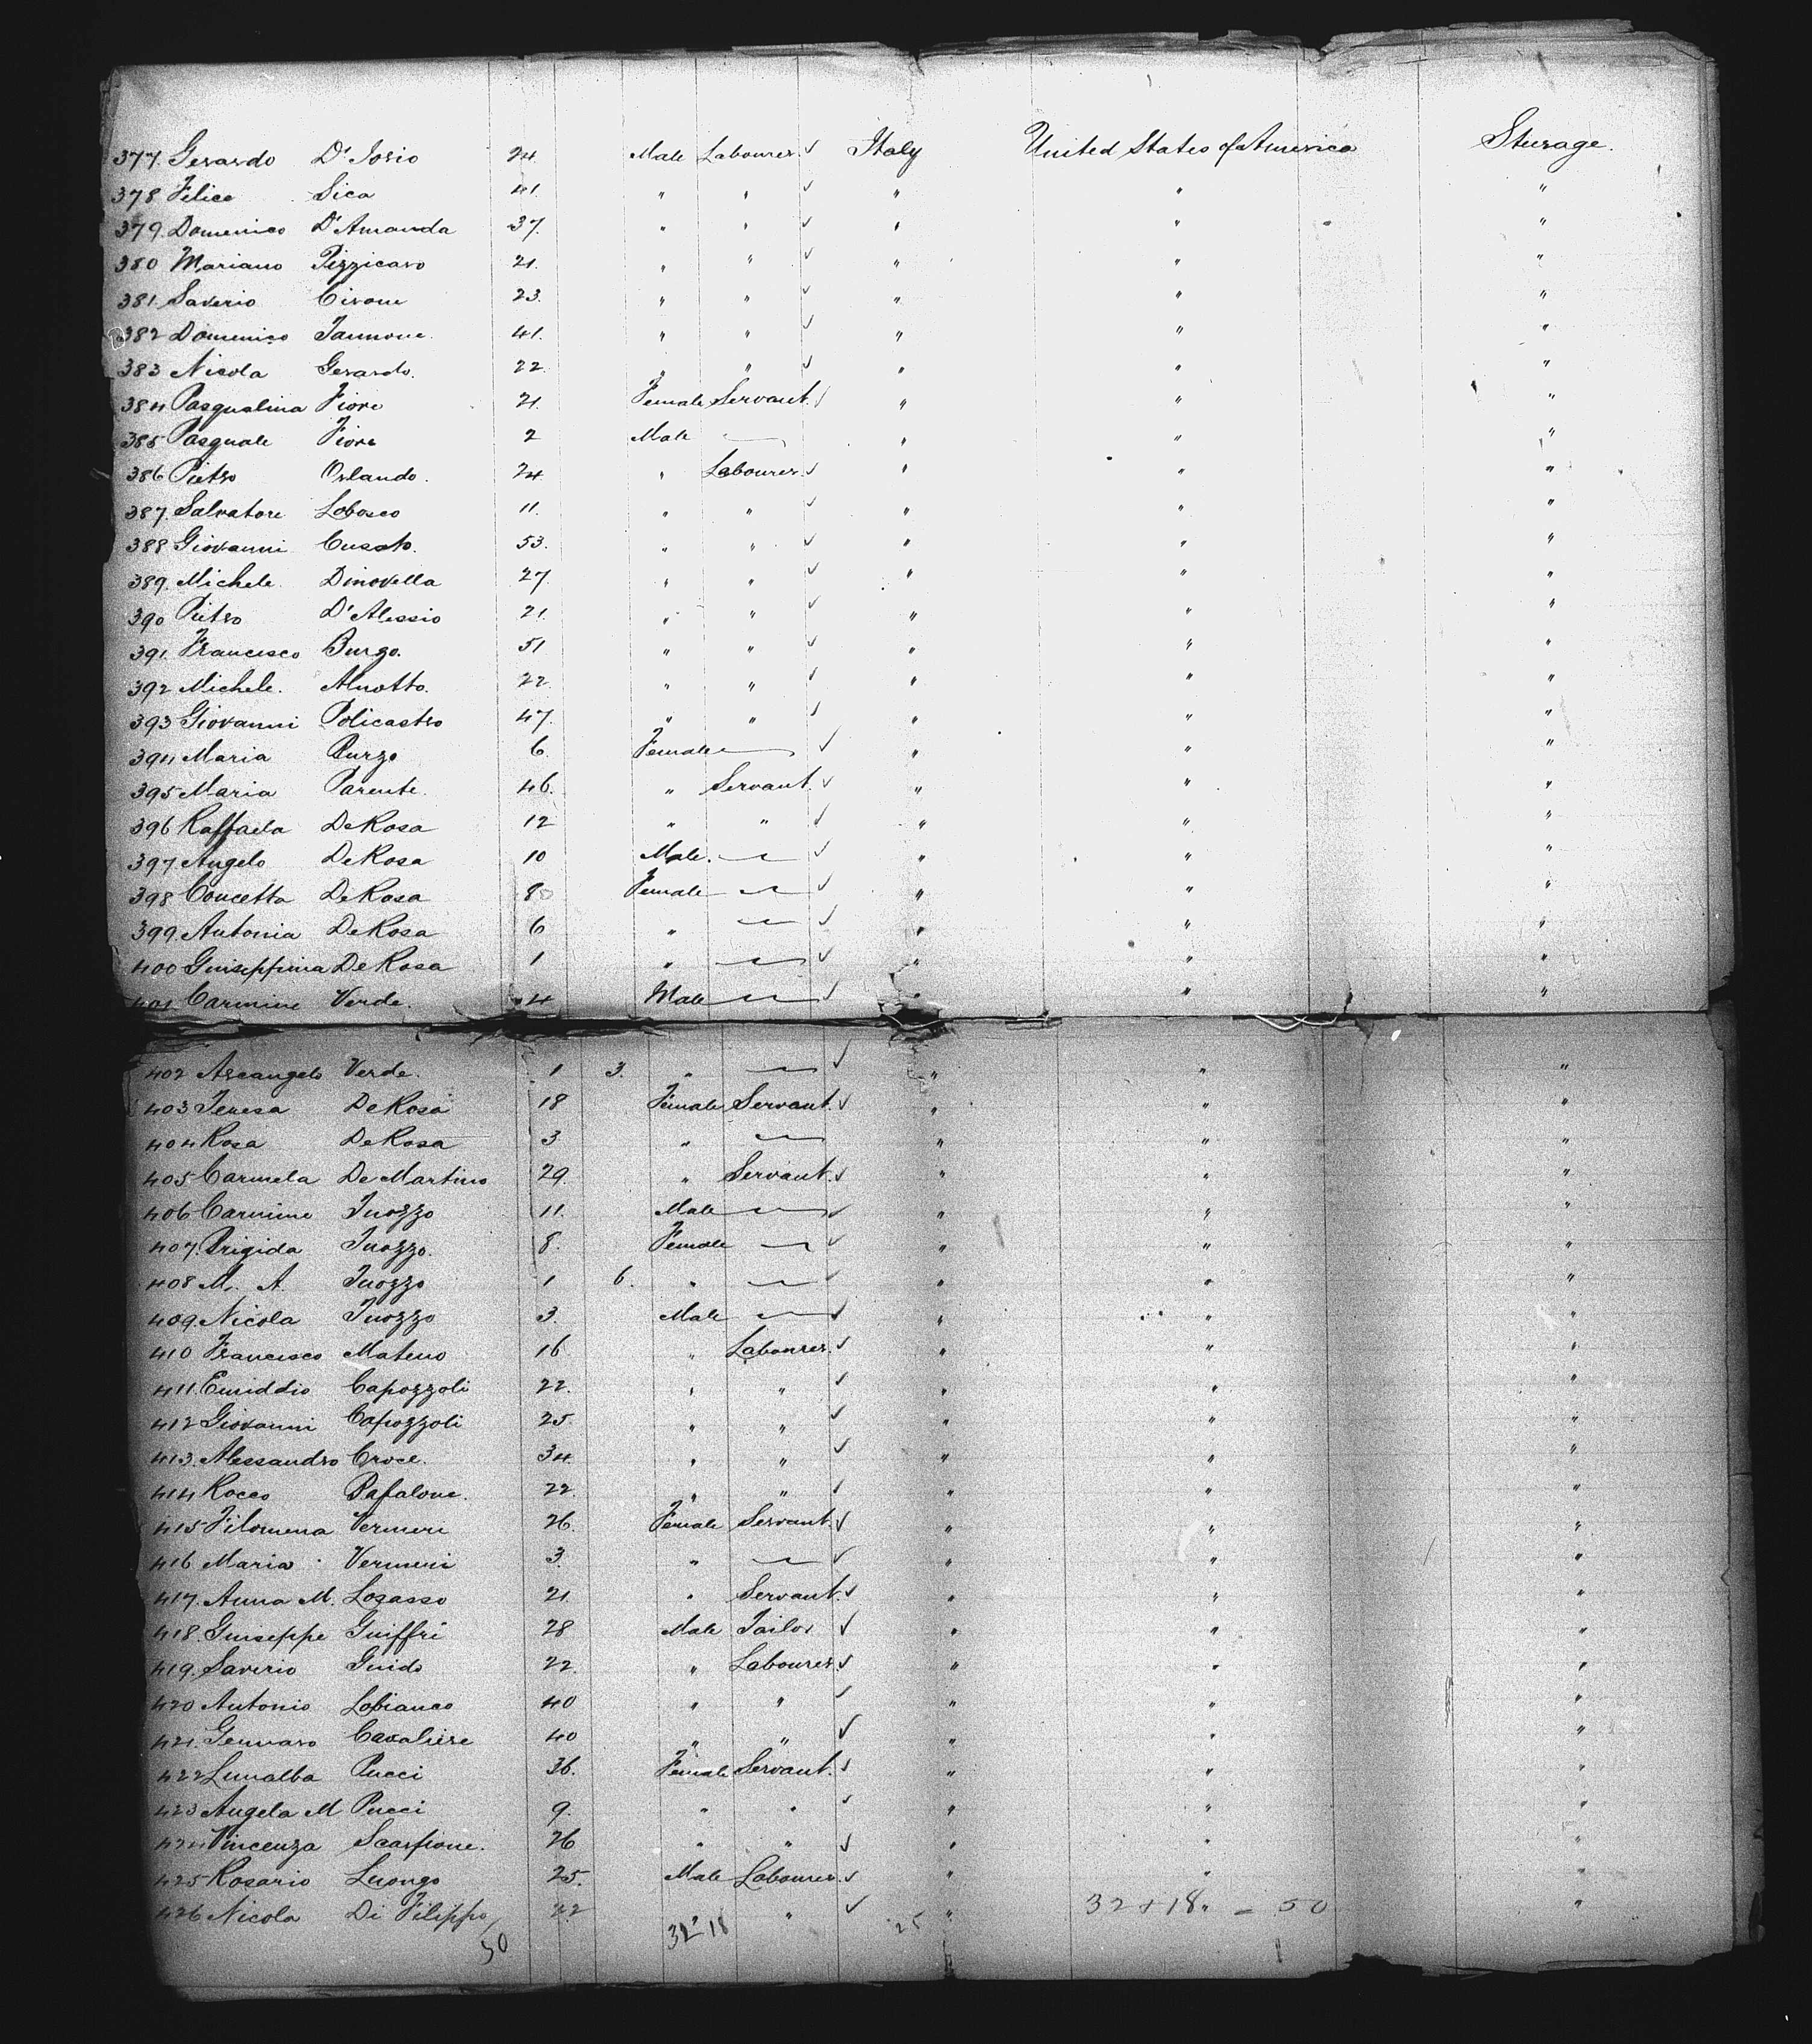 377. Gerardo D'Iorio 24. Male Labourer. ✓ Italy United States of America Steerage.
378 Felice Sica 41. " " ✓ " " "
379. Domenico D'Amanda 37. " " ✓ " " "
380 Mariano Pizzicaro 21. " " ✓ " " "
381. Saverio Cirone 23. " " ✓ " " "
382 Domenico Iannone. 41. " " ✓ " " "
383 Nicola Gerardo. 22. " " ✓ " " "
384 Pasqualina Fiore 21. Female Servant. ✓ " " "
385 Pasquale Fiore 2 Male — " " "
386 Pietro Orlando. 24 " Labourer. ✓ " " "
387. Salvatore Lobosco 11. " " ✓ " " "
388 Giovanni Cusato. 53. " " ✓ " " "
389. Michele. Dinovella 27. " " ✓ " " "
390 Pietro D'Alessio 21. " " ✓ " " "
391. Francesco Burgo. 51 " " ✓ " " "
392 Michele. Aluotto. 22. " " ✓ " " "
393 Giovanni Policastro 47. " " ✓ " " "
394 Maria Purzo 6. Female — ✓ " " "
395 Maria Parente. 46. " Servant. ✓ " " "
396 Raffaela DeRosa 12 " " ✓ " " "
397. Angelo DeRosa 10 Male. — ✓ " " "
398 Concetta DeRosa 8 Female — ✓ " " "
399. Antonia DeRosa 6 " — ✓ " " "
400 Guiseppina DeRosa 1 " — ✓ " " "
401 Carmine Verde. 4 Male — ✓ " " "
402 Arcangelo Verde. 1 3. " — ✓ " " "
403 Teresa DeRosa 18 Female Servant. ✓ " " "
404 Rosa DeRosa 3 " — " " "
405 Carmela De Martino 29. " Servant. ✓ " " "
406 Carmine Iuozzo 11. Male — ✓ " " "
407. Brigida Iuozzo. 8. Female — ✓ " " "
408 M. A. Iuozzo 1 6. " — ✓ " " "
409. Nicola Iuozzo 3. Male — ✓ " " "
410 Francisco Mateuo 16 " Labourer. ✓ " " "
411. Emiddio Capozzoli 22. " " ✓ " " "
412 Giovanni Capozzoli 25. " " ✓ " " "
413. Alessandro Croce. 34 " " ✓ " " "
414 Rocco Pafalone. 22. " " ✓ " " "
415 Filomena Vermeri 26. Female Servant. ✓ " " "
416 Maria Vermeri 3. " — ✓ " " "
417. Anna M. Losasso 21. " Servant. ✓ " " "
418. Guiseppe Guiffri 28 Male Tailor ✓ " " "
419. Saverio Guido 22. " Labourer. ✓ " " "
420 Antonio Lobianco 40 " " ✓ " " "
421. Gennaro Cavaliere 40 " " ✓ " " "
422 Lunalba Pucci 36. Female Servant. ✓ " " "
423 Angela M Pucci 9. " " ✓ " " "
424 Vincenza Scarfione. 26 " " ✓ " " "
425 Rosario Luongo 25. Male Labourer. ✓ " " "
426 Nicola Di Filippo 22 " ✓ " 32 + 18 = 50 "
50 32 18 25